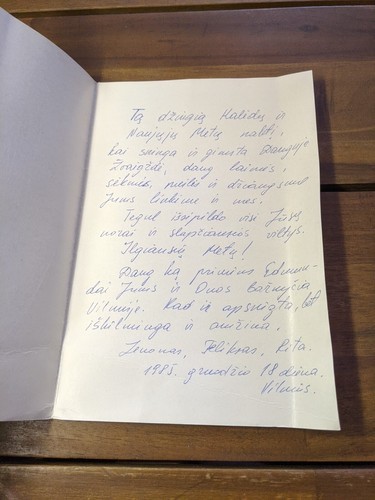 Tą džiugią Kalėdų ir
Naujųjų Metų naktį,
kai sninga ir gimsta Danguje
Žvaigždė, daug laimės,
sėkmės, meilės ir džiaugsmo
Jums linkime ir mes.
Tegul išsipildo visi Jūsų
norai ir slapčiausios viltys.
Ilgiausių Metų!
Daug ką primins Edmun-
dai Jums ir Onos bažnyčia
Vilniuje. Kad ir apsnigta, bet
iškilminga ir amžina.
Zenonas, Feliksas, Rita.
1985. gruodžio 18 diena.
Vilnius.